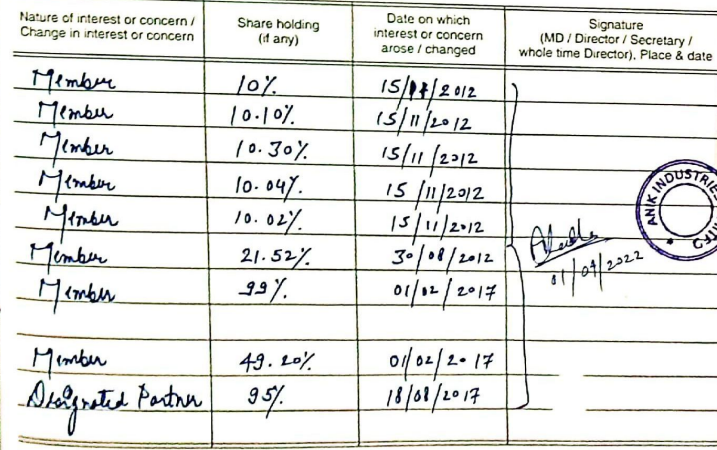 Nature of interest or concern / Change in interest or concern Share holding (if any) Date on which interest or concern arose / changed Signature (MD / Director / Secretary / whole time Director), Place & date
Member 10% 15/11/2012
Member 10.10% 15/11/2012
Member 10.30% 15/11/2012
Member 10.04% 15/11/2012
Member 10.02% 15/11/2012
Member 21.52% 30/08/2012
Member 99% 01/02/2017
01/04/2022
Member 49.20% 01/02/2017
Designated Partner 95% 18/08/2017
ANIK INDUSTRIE